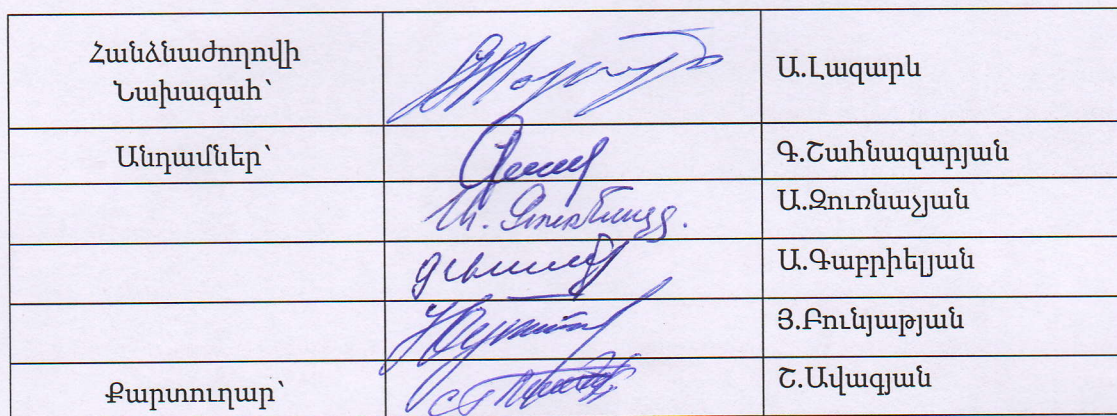 Հանձնաժողովի
Նախագահ՝
Ա.Լազարև
Անդամներ՝
Գ.Շահնազարյան
Ա.Զուռնաչյան
Ա.Գաբրիելյան
Յ.Բունյաթյան
Քարտուղար՝
Շ.Ավագյան